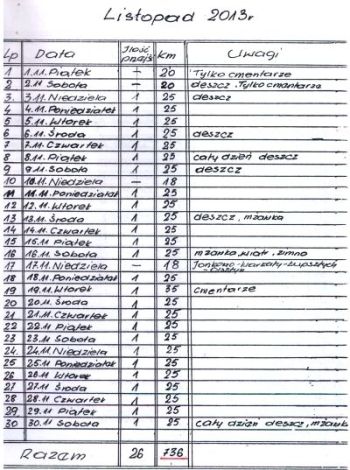 Listopad 2013r
Lp Data Ilość przejś km Uwagi
1 1.11. Piątek — 20 Tylko cmentarze
2 2.11 Sobota — 20 deszcz. Tylko cmentarze
3. 3.11. Niedziela 1 25 deszcz
4 4.11. Poniedziałek 1 25
5 5.11. Wtorek 1 25
6 6.11. Środa 1 25 deszcz
7 7.11. Czwartek 1 25
8 8.11. Piątek 1 25 cały dzień deszcz
9 9.11. Sobota 1 25 deszcz
10 10.11. Niedziela — 18
11 11.11. Poniedziałek 1 25
12 12.11. Wtorek 1 25
13 13.11. Środa 1 25 deszcz, mżawka
14 14.11. Czwartek 1 25
15 15.11. Piątek 1 25
16 16.11. Sobota 1 25 mżawka, wiatr, zimno
17 17.11. Niedziela 1 18 Jonkowo-Warkały-
18 18.11. Poniedziałek 1 25
19 19.11. Wtorek 1 35 Cmentarze
20 20.11. Środa 1 25
21 21.11. Czwartek 1 25
22 22.11 Piątek 1 25
23 23.11 Sobota 1 25
24. 24.11 Niedziela 1 25
25 25.11 Poniedziałek 1 25
26 26.11 Wtorek 1 25
27 27.11 Środa 1 25
28 28.11 Czwartek 1 25
29 29.11 Piątek 1 25
30 30.11 Sobota 1 25 cały dzień deszcz, mżawka
Razem 26 736